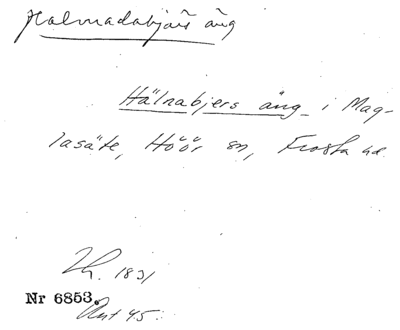 Halmadabjärs äng
Hälnabjers äng i Mag-
lasäte, Höör sn, Frosta hd
Lh. 1831
Nr 6853.
Ant 45.